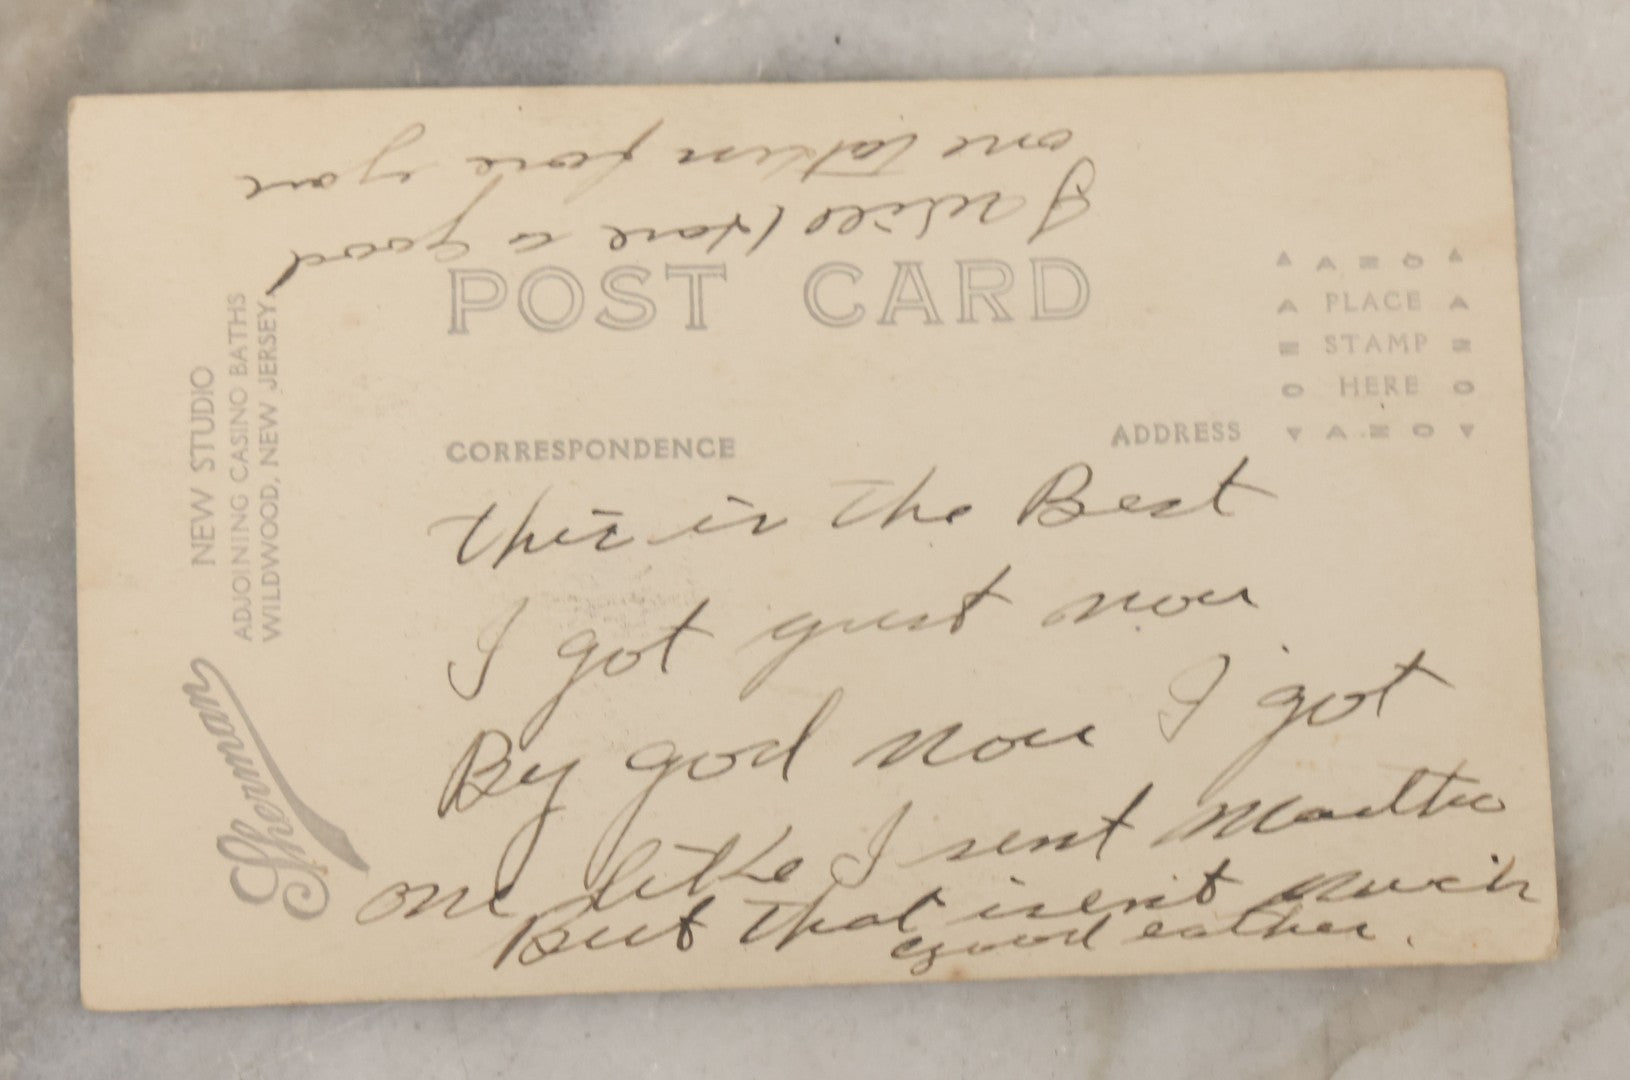 POST CARD
AZO
PLACE
STAMP
HERE
AZO
CORRESPONDENCE
ADDRESS
this is the Best
I got gust now
By god now I got
one like I sent
But that isent much
good eather.
I will have a good
one taken fore you
Sherman
NEW STUDIO
ADJOINING CASINO BATHS
WILDWOOD, NEW JERSEY